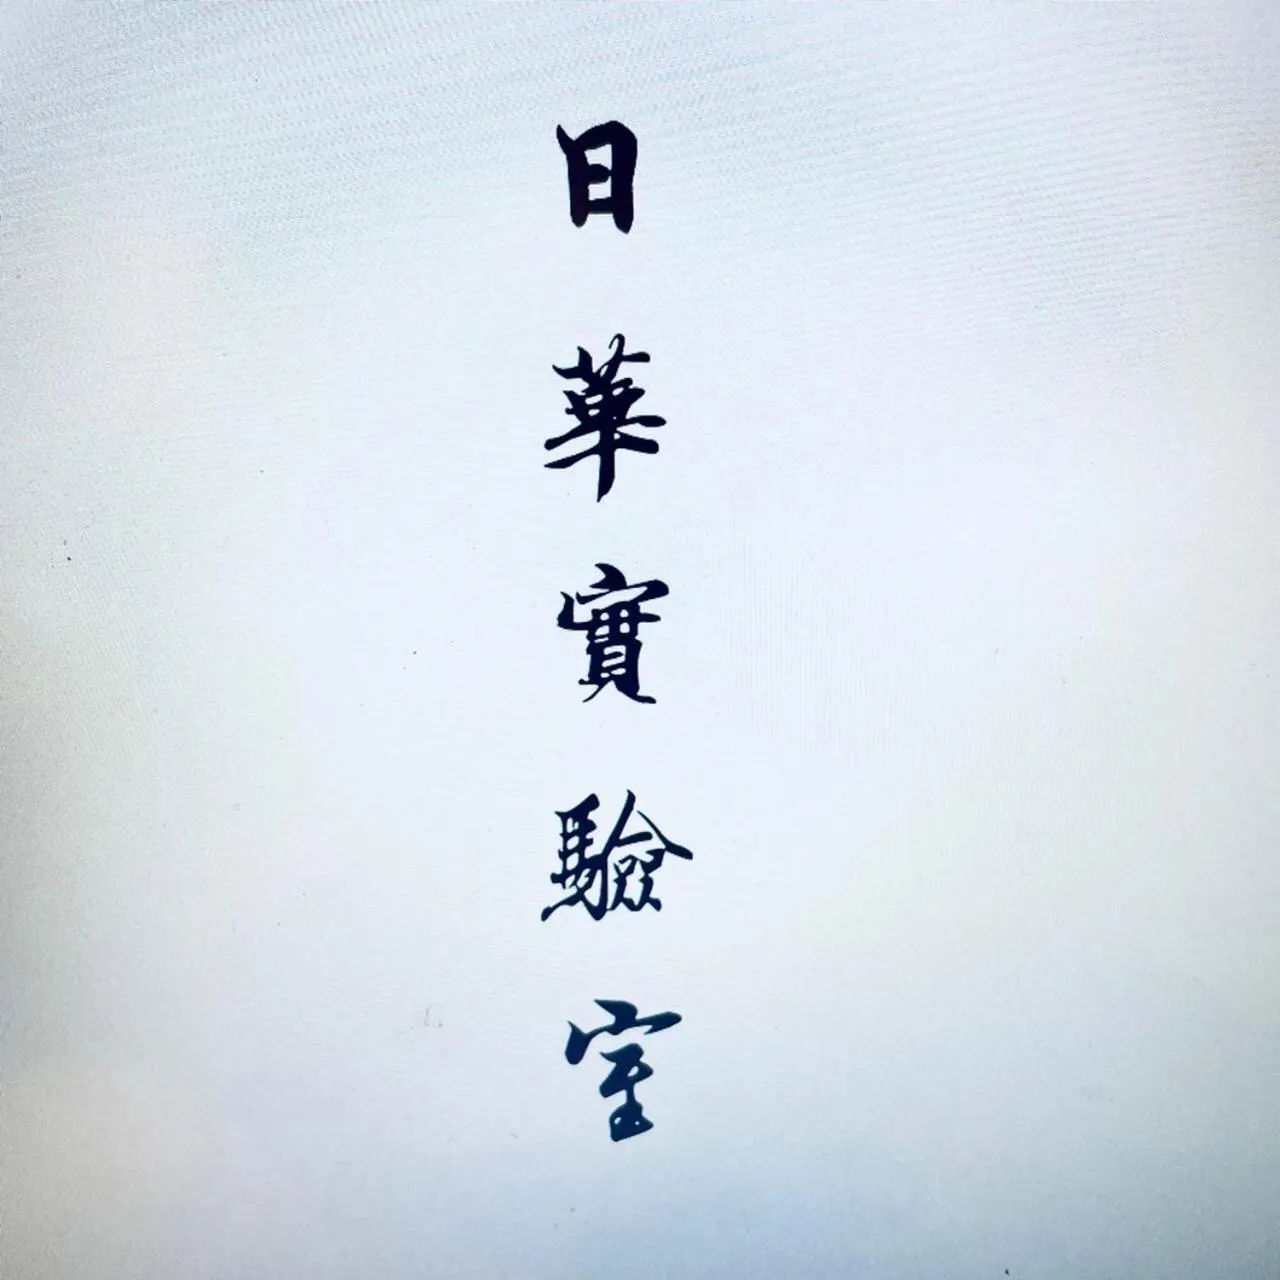 日華實驗室